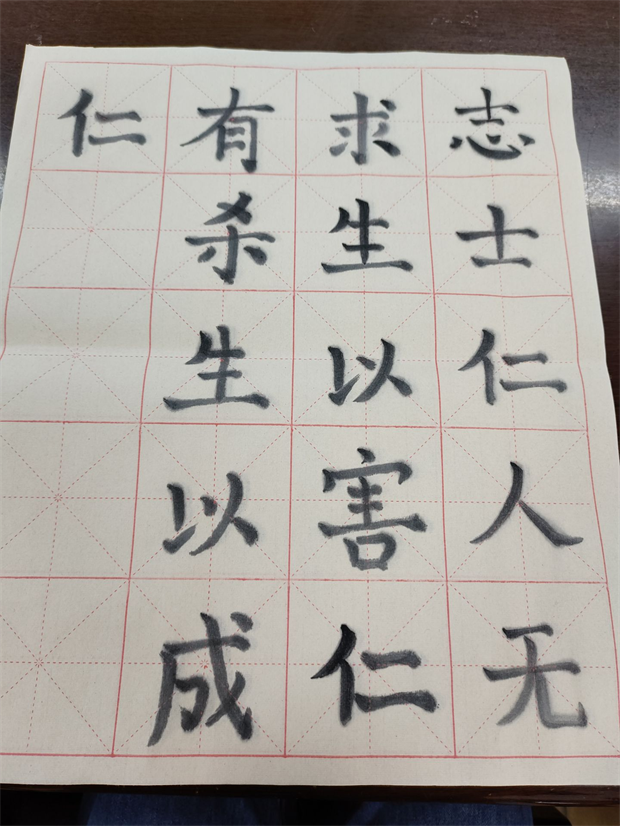 志士仁人无
求生以害仁
有杀生以成
仁